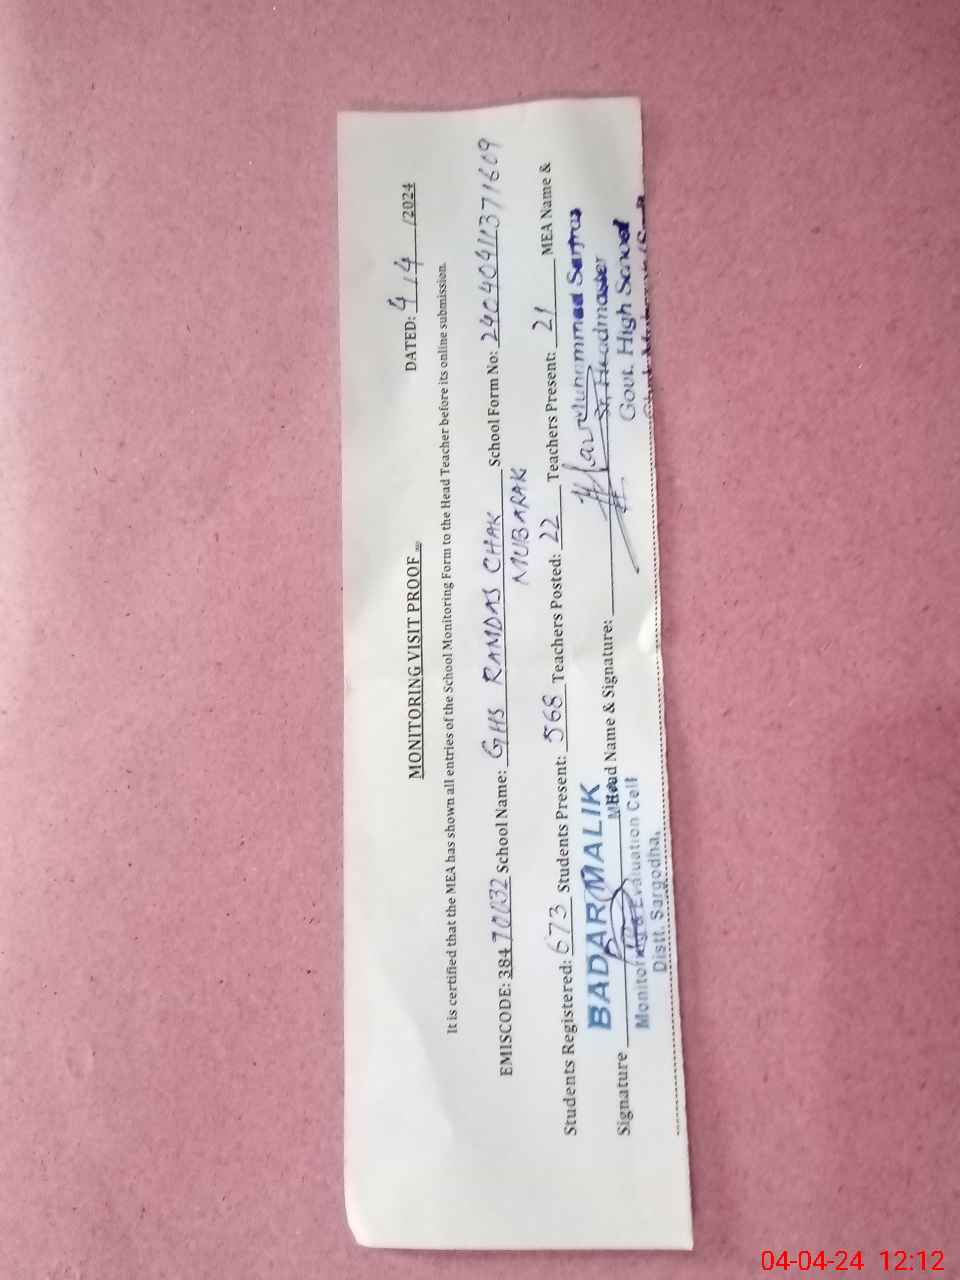 MONITORING VISIT PROOF
DATED: 4/4/2024
It is certified that the MEA has shown all entries of the School Monitoring Form to the Head Teacher before its online submission.
EMISCODE: 38470032 School Name: GHS RAMDAS CHAK MUBARAK School Form No:
Students Registered: 673 Students Present: 568 Teachers Posted: 22 Teachers Present: 21 MEA Name &
Signature Head Name & Signature:
BADAR MALIK
Monitoring & Evaluation Cell
Distt. Sargodha.
Muhammad Sarfraz
Sr. Headmaster
Govt. High School
04-04-24 12:12